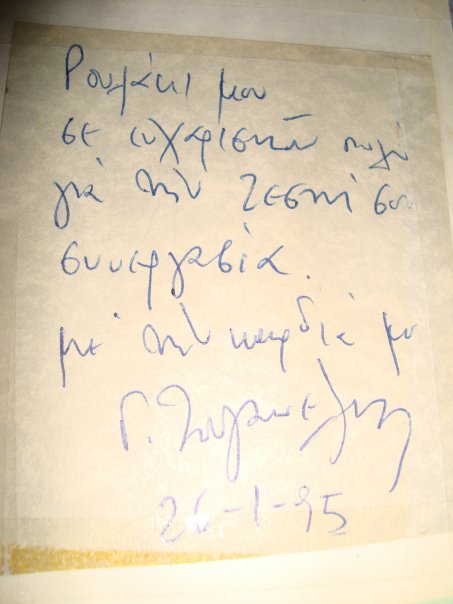 Ρουλάκι μου
σε ευχαριστώ πολύ
για την ζεστή σου
συνεργασία.
με την καρδιά μου
Γ.
26-1-95